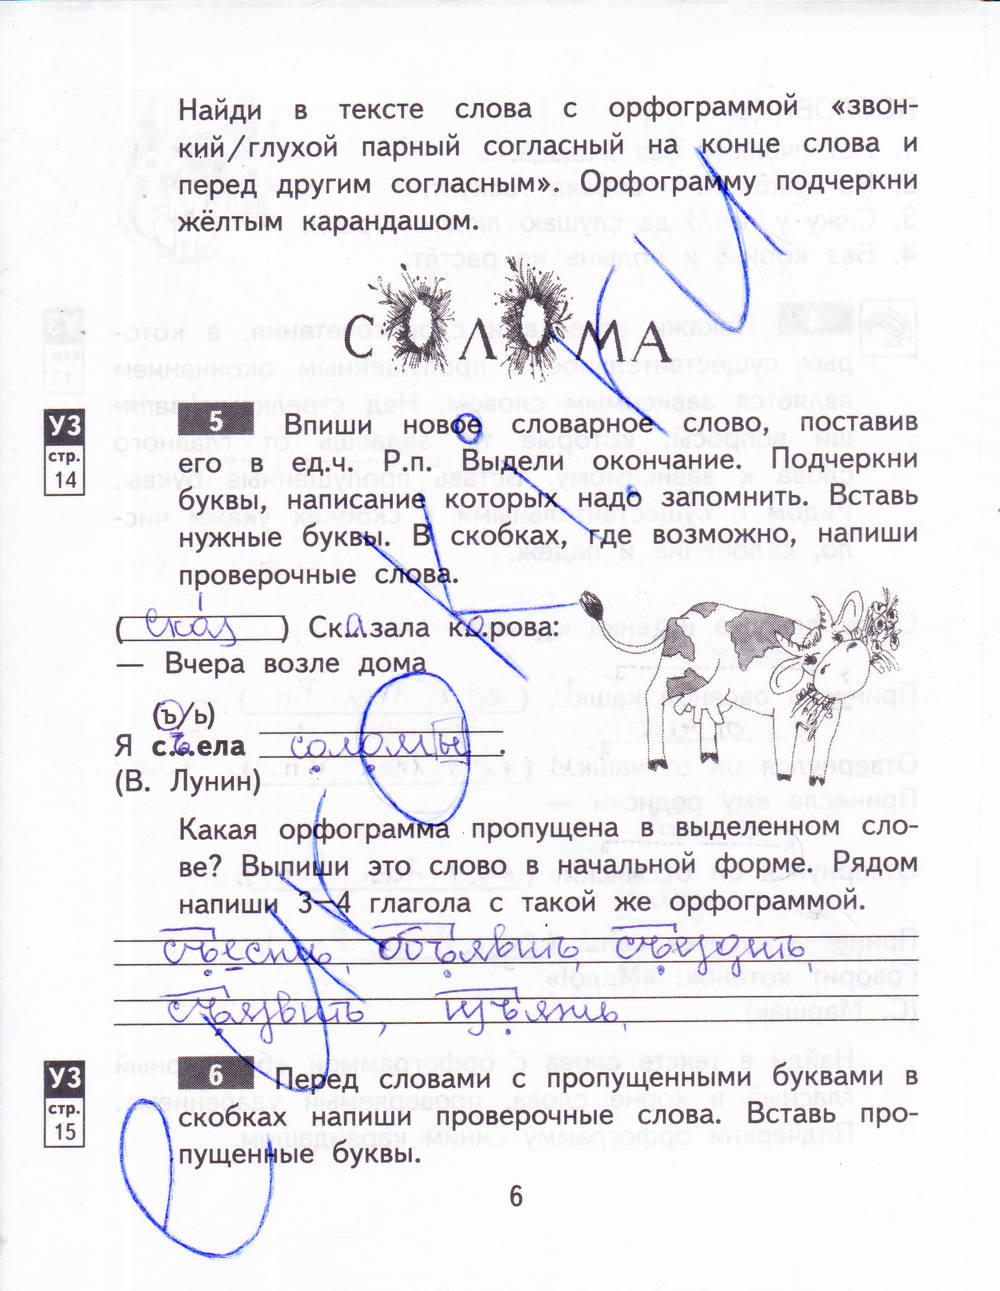 Найди в тексте слова с орфограммой «звон-
кий/глухой парный согласный на конце слова и
перед другим согласным». Орфограмму подчеркни
жёлтым карандашом.
СОЛОМА
УЗ
стр.
14
5 Впиши новое словарное слово, поставив
его в ед.ч. Р.п. Выдели окончание. Подчеркни
буквы, написание которых надо запомнить. Вставь
нужные буквы. В скобках, где возможно, напиши
проверочные слова.
( ) Сказала корова:
— Вчера возле дома
(ъ/ь)
Я съела соломы.
(В. Лунин)
Какая орфограмма пропущена в выделенном сло-
ве? Выпиши это слово в начальной форме. Рядом
напиши 3—4 глагола с такой же орфограммой.
съесть, объявить, съездить,
съязвить, изъять.
УЗ
стр.
15
6 Перед словами с пропущенными буквами в
скобках напиши проверочные слова. Вставь про-
пущенные буквы.
6